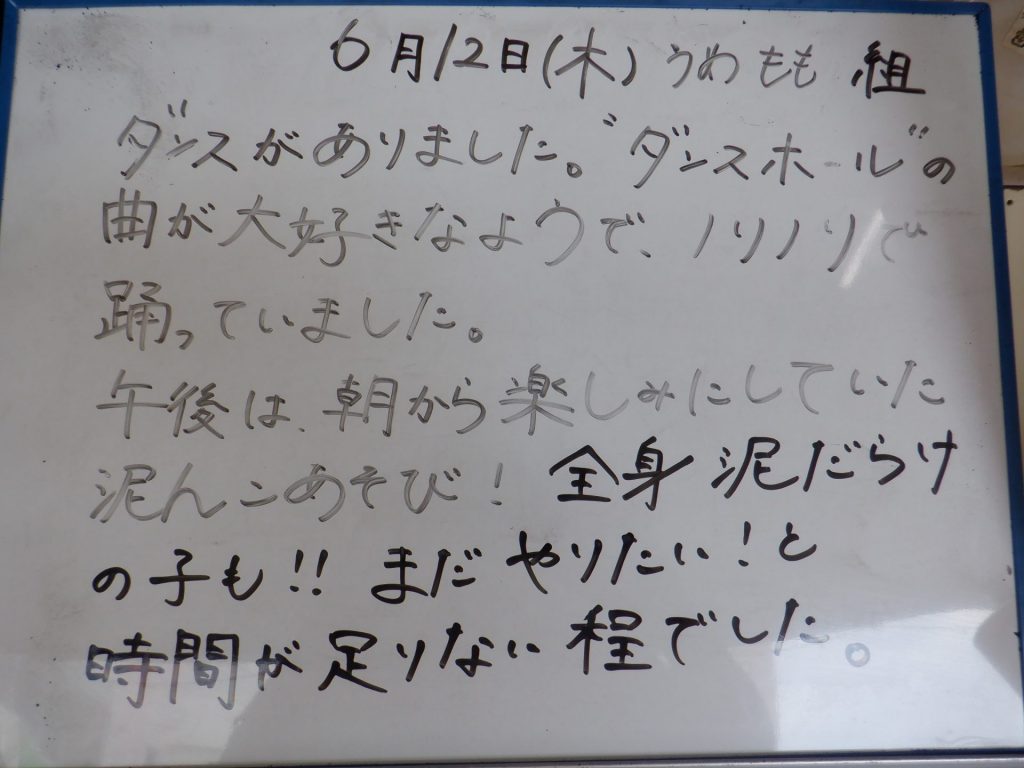 6月12日(木) うめ もも 組
ダンスがありました。"ダンスホール"の
曲が大好きなようで、ノリノリで
踊っていました。
午後は、朝から楽しみにしていた
泥んこあそび! 全身泥だらけ
の子も!! まだやりたい!と
時間が足りない程でした。